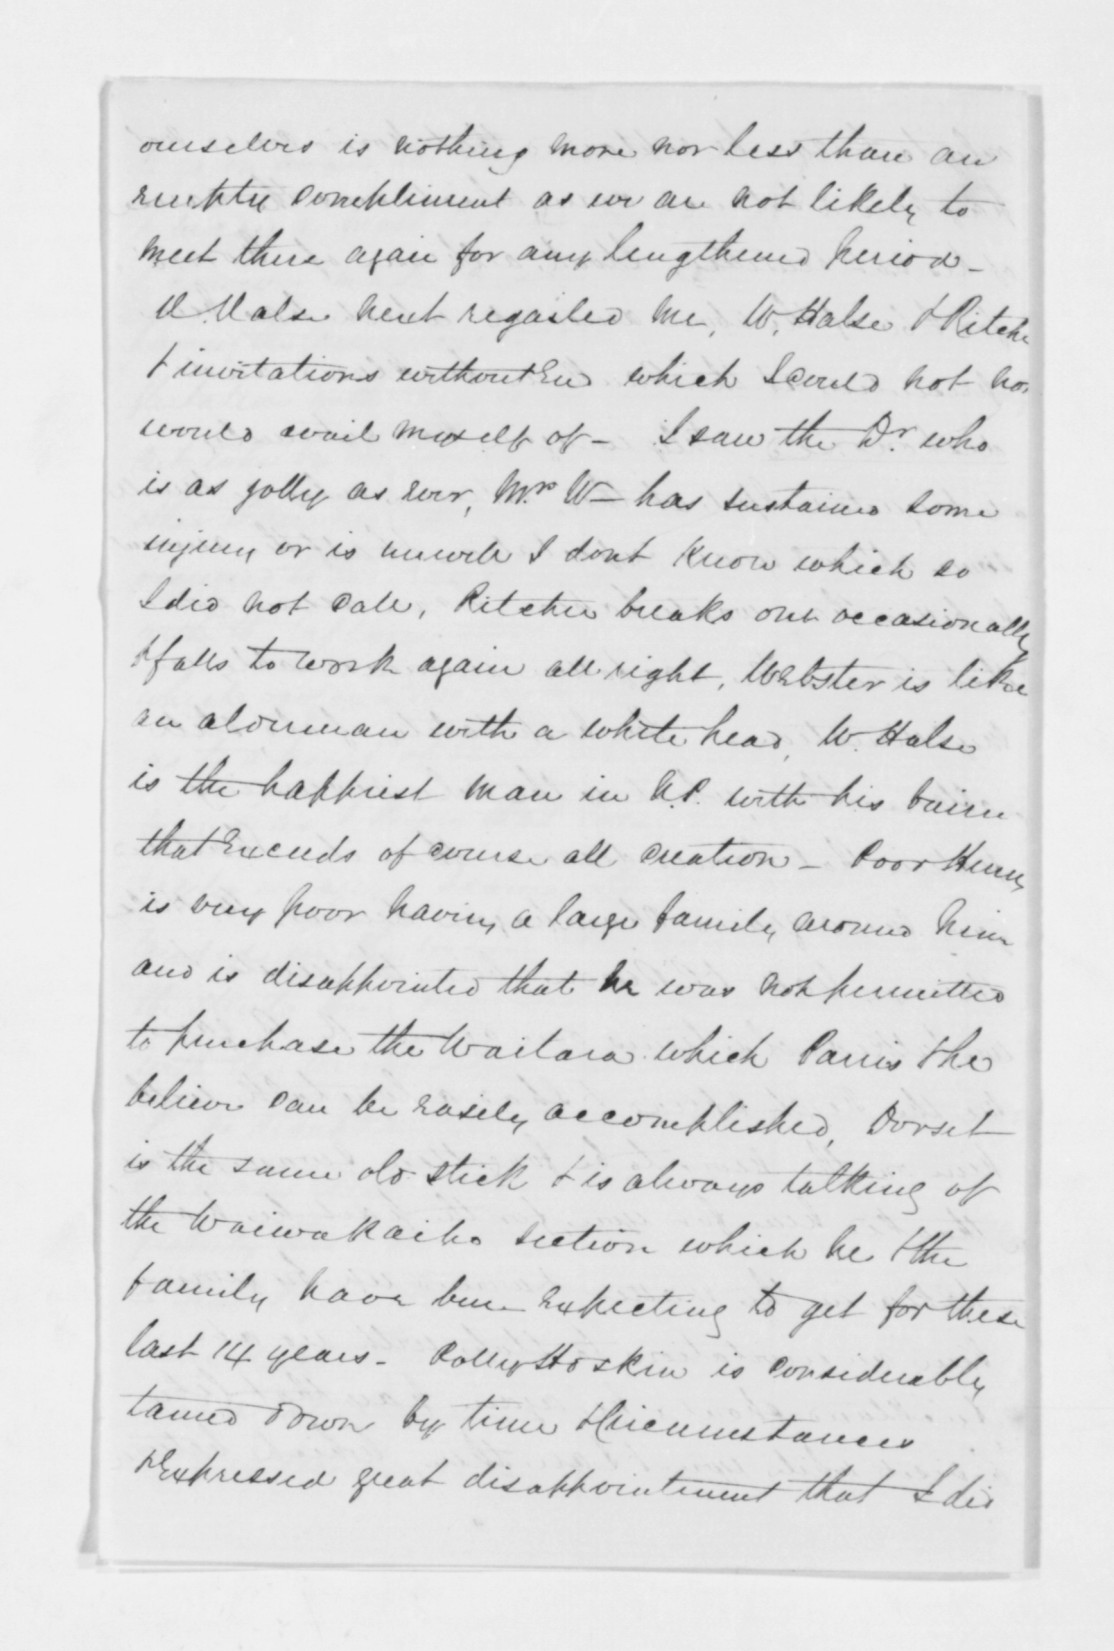 ourselves is nothing more nor less than an
empty compliment as we are not likely to
meet there again for any lengthened period -
H. Halse next regaled me, W. Halse & Ritchie
& invitations without End which I could not nor
would avail myself of - I saw the Dr. who
is as jolly as ever, Mrs W - has sustained some
injury or is unwell I dont know which so
I did not call, Ritchie breaks out occasionally
& falls to work again all right, Webster is like
an alderman with a white head, W. Halse
is the happiest man in N.P. with his bairn
that Exceeds of course all creation - Poor Henry
is very poor having a large family around him
and is disappointed that he was not permitted
to purchase the Waitara which Parris & he
believe can be easily accomplished, Dorset
is the same old stick & is always talking of
the Waiwakaiho section which he & the
family have been Expecting to get for these
last 14 years - Polly Hoskin is considerably
tamed down by time & Circumstances
& Expressed great disappointment that I did